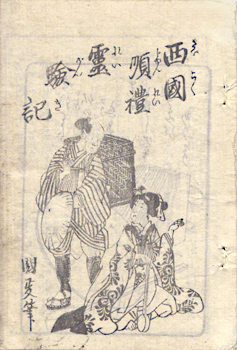 西國
順禮
靈
驗
記
國芳筆